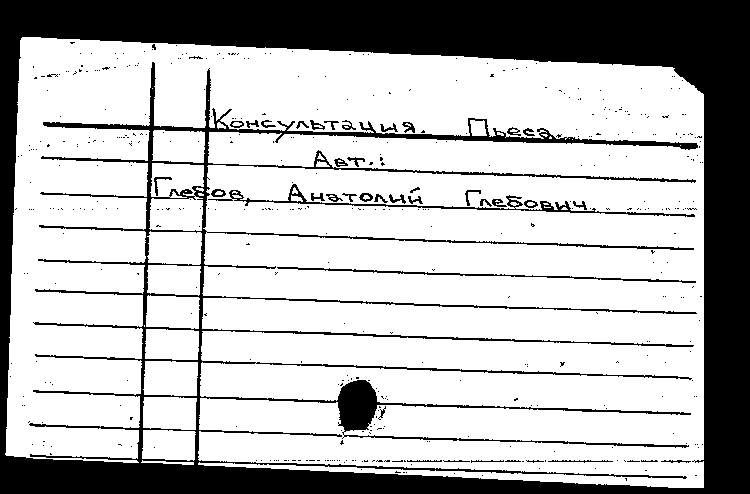 Консультация. Пьеса.
Авт.:
Глебов, Анатолий Глебович.